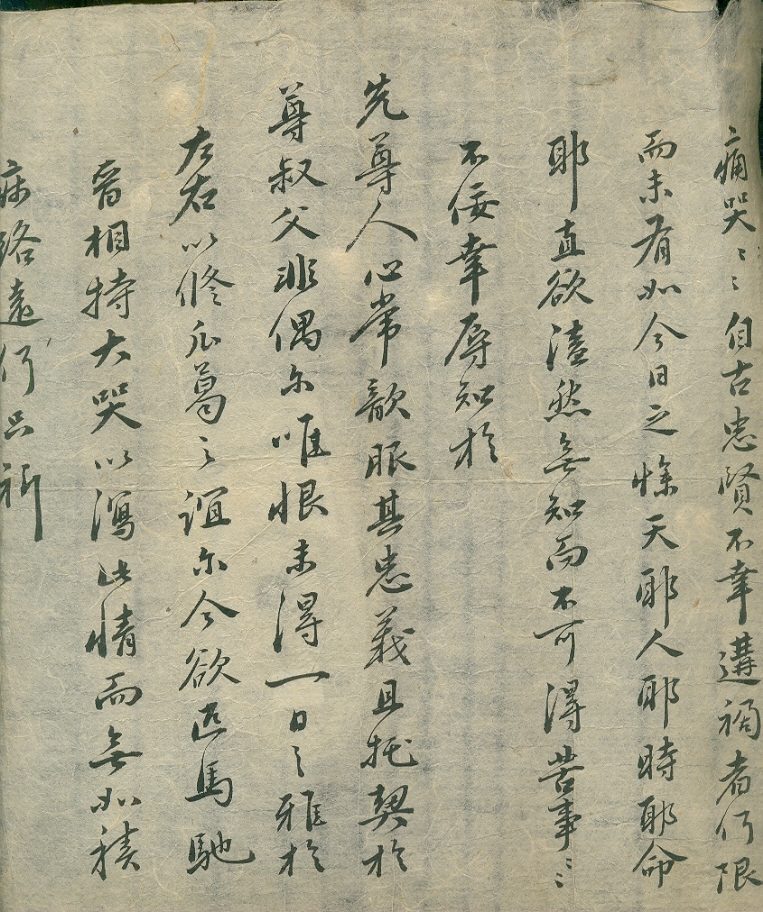 痛哭〻〻自古忠賢不幸遘禍者何限
而未有如今日之慘天耶人耶時耶命
耶直欲溘然無知而不可得苦事〻〻
不佞幸辱知於
先尊人心常歆服其忠義且托契於
尊叔父非偶尓唯恨未得一日之雅於
左右以修瓜葛之誼尓今欲匹馬馳
相持大哭以瀉此情而無如積
病路遠何只祈